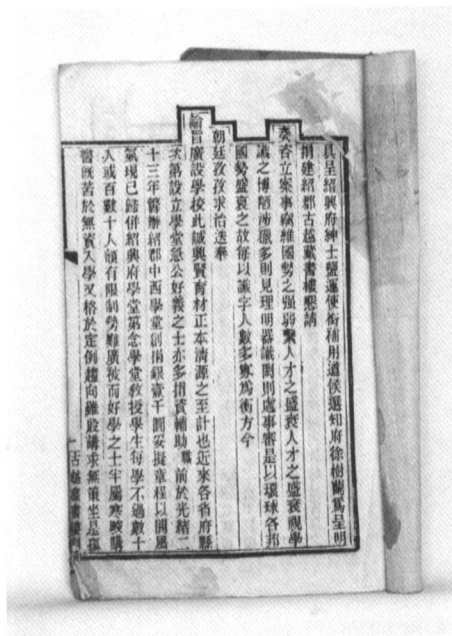 具呈紹興府紳士鹽運使銜補用道候選知府徐樹蘭爲呈明
捐建紹郡古越藏書樓懇請
奏咨立案事竊維國勢之强弱繫人才之盛衰人才之盛衰視學
識之博陋涉獵多則見理明器識閎則處事審是以環球各邦
國勢盛衰之故每以識字人數多寡爲衡方今
朝廷孜孜求治迭奉
諭旨廣設學校此誠興賢育材正本清源之至計也近來各省府縣
次第設立學堂急公好義之士亦多捐資輔助職前於光緒二
十三年籌辦紹郡中西學堂創捐銀壹千圓妥擬章程以開風
氣現已歸併紹興府學堂第念學堂教授學生每學不過數十
人或百數十人額有限制勢難廣被而好學之士半屬寒畯購
書既苦於無資入學又格於定例趨向雖殷講求無策坐是孤
古越藏書樓